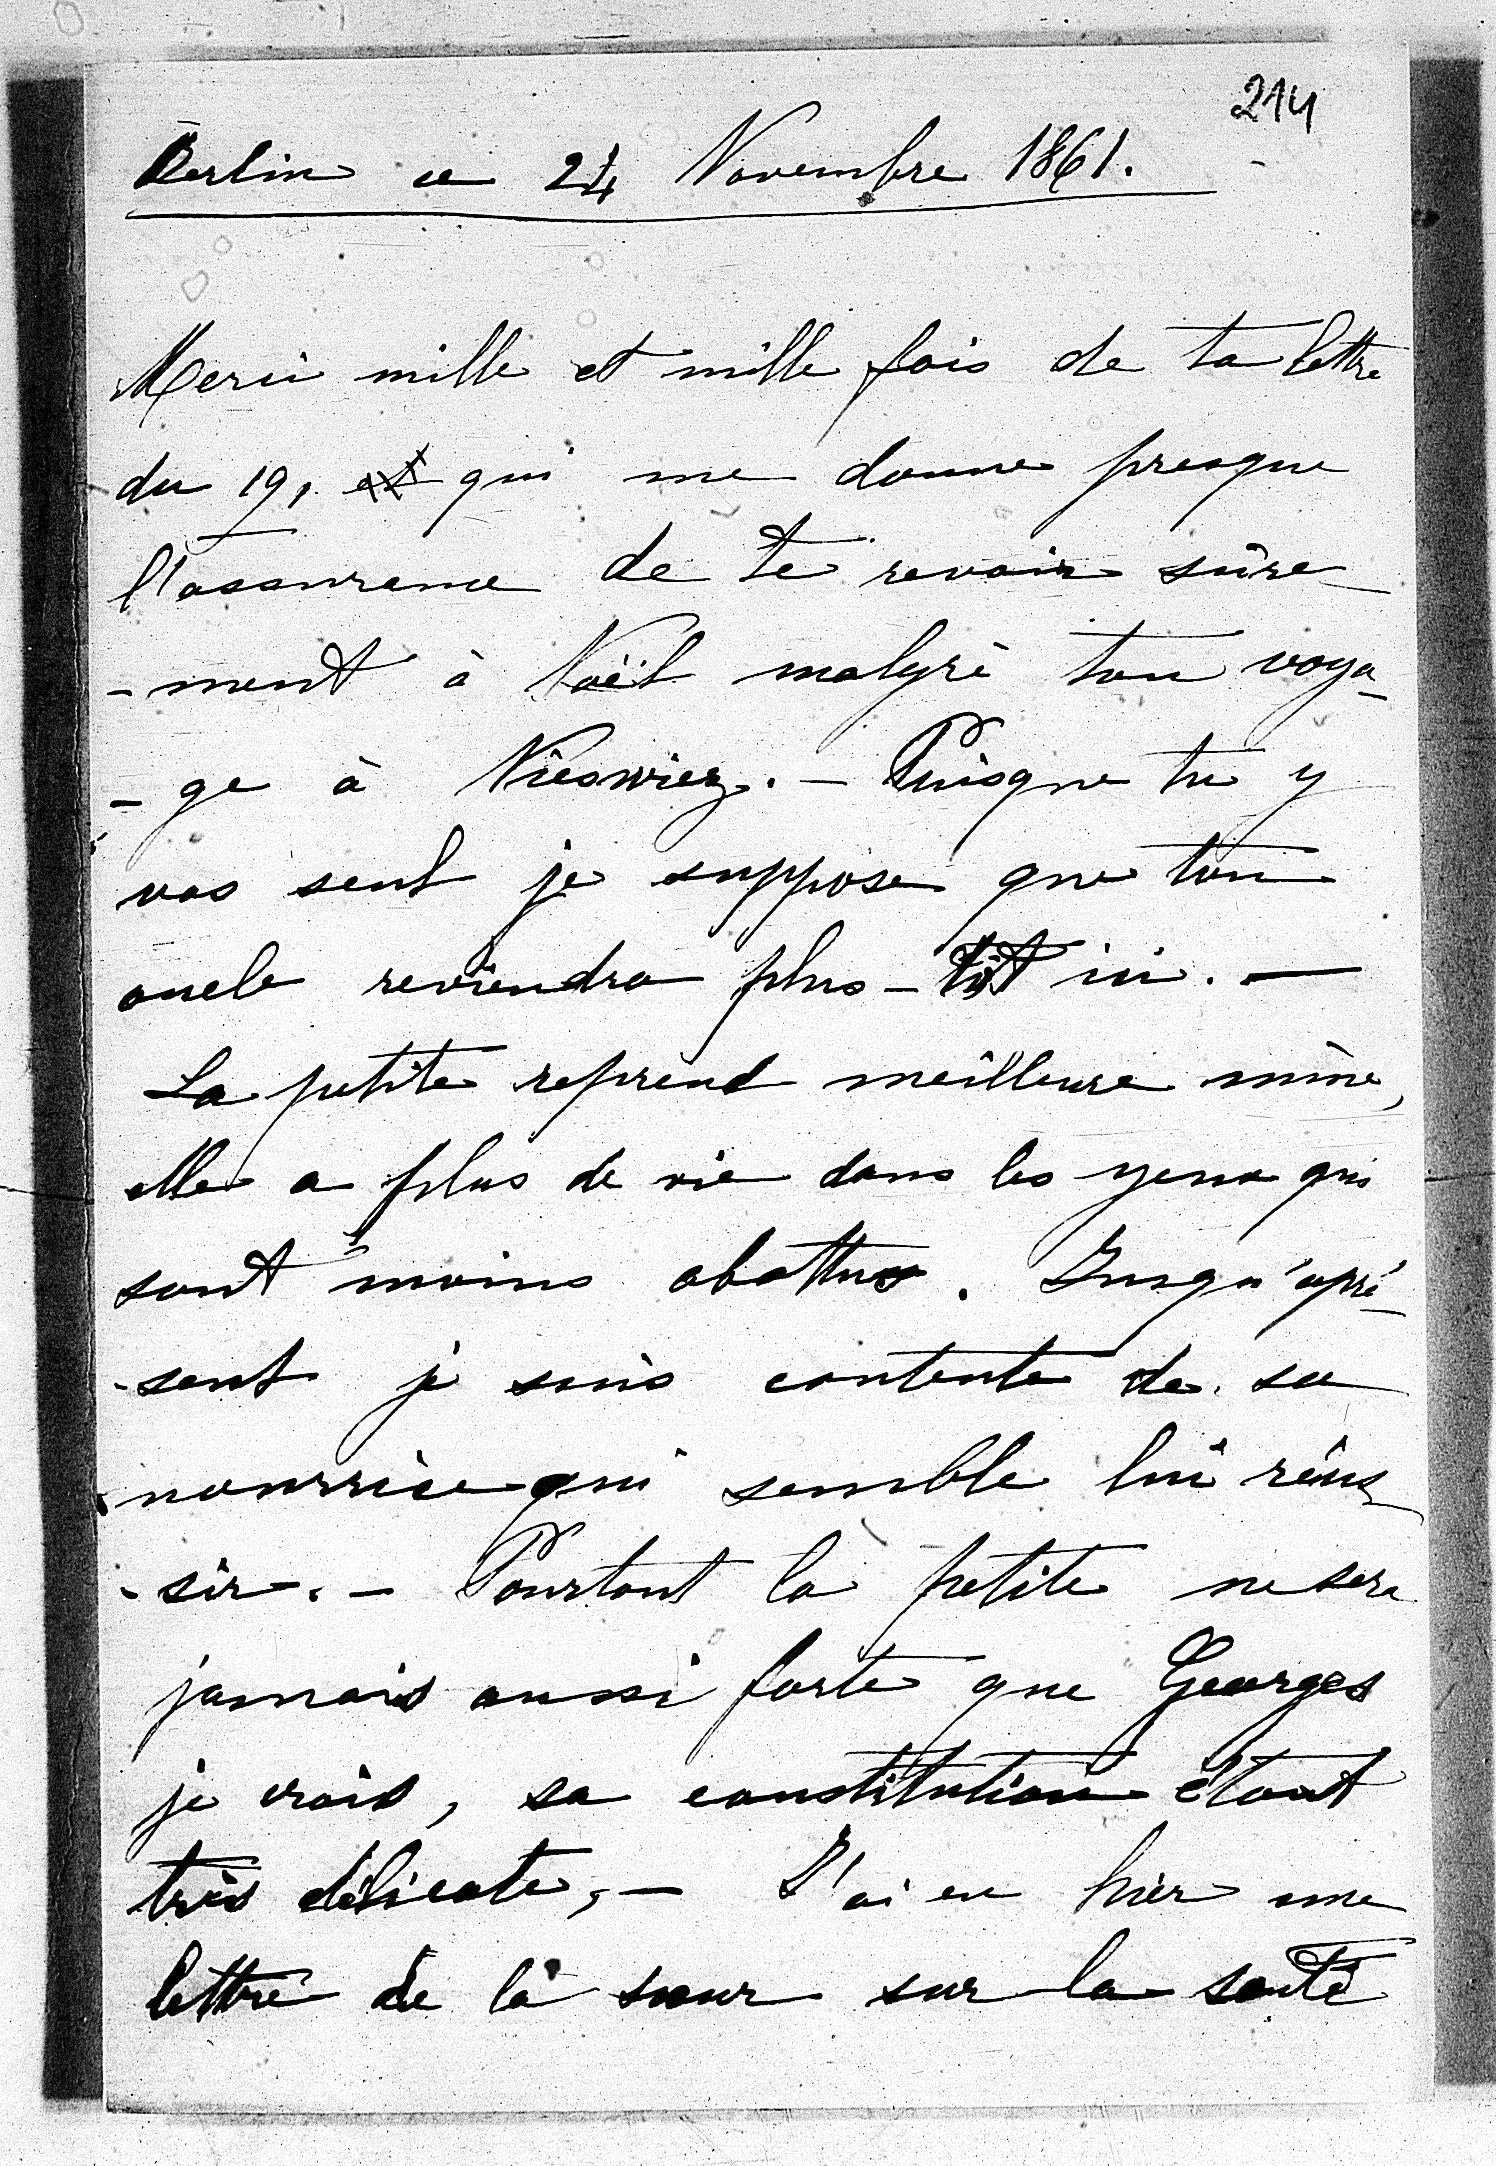 214
Berlin ce 24 Novembre 1861.
Merci mille et mille fois de ta lettre
du 19, et qui me donne presque
l'assurance de te revoir sûre-
-ment à Noël malgré ton voya-
-ge à Nieswiez. - Puisque tu y
vas seul je suppose que ton
oncle reviendra plus-tôt ici. —
La petite reprend meilleure mine,
elle a plus de vie dans les yeux qui
sont moins abattus. Jusqu'apré-
-sent je suis contente de sa
nourrice qui semble lui réus-
-sir. - Pourtant la petite ne sera
jamais aussi forte que Georges
je crois, sa constitution étant
très délicate, - J'ai eu hier une
lettre de la sœur sur la santé